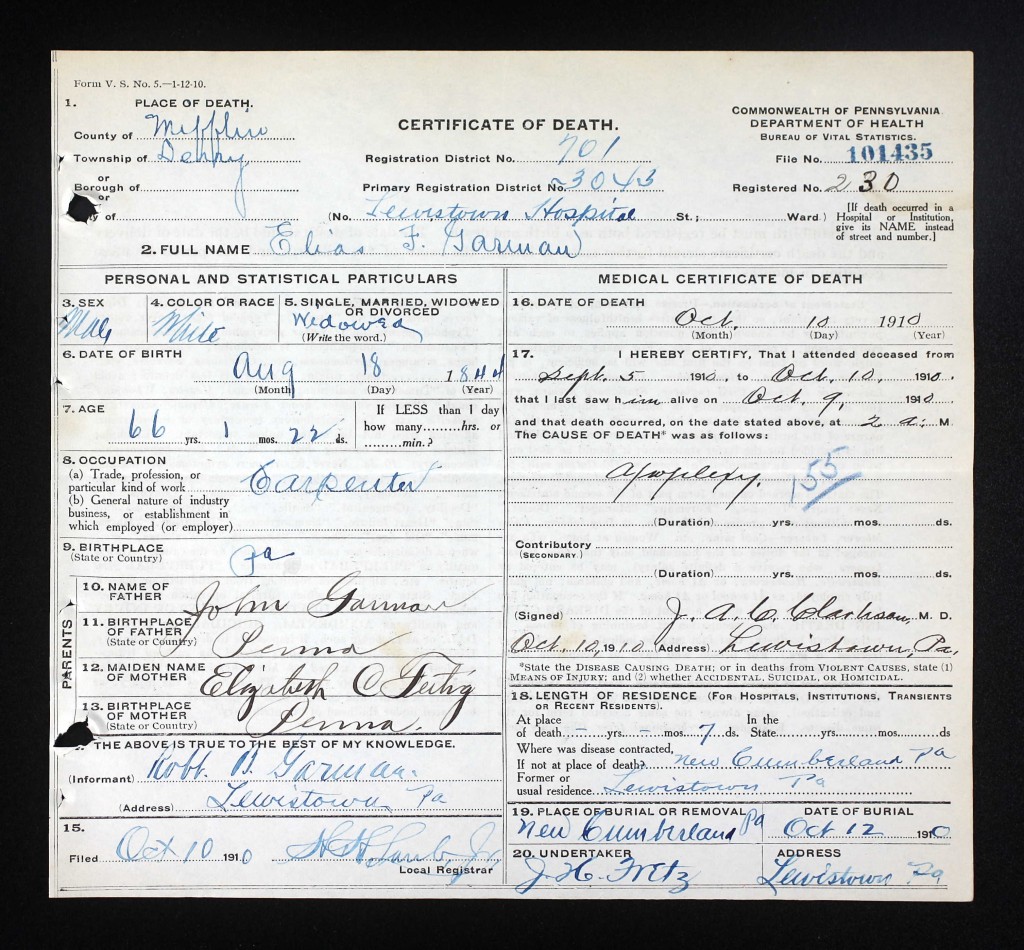 Form V. S. No. 5.—1-12-10.
1. PLACE OF DEATH.
County of Mifflin
Township of Derry
or
Borough of
or
City of
CERTIFICATE OF DEATH.
Registration District No. 701
Primary Registration District No. 3043
(No. Lewistown Hospital St.; Ward)
COMMONWEALTH OF PENNSYLVANIA
DEPARTMENT OF HEALTH
BUREAU OF VITAL STATISTICS.
File No. 101435
Registered No. 230
[If death occurred in a
Hospital or Institution,
give its NAME instead
of street and number.]
2. FULL NAME Elias F. Garman
PERSONAL AND STATISTICAL PARTICULARS
3. SEX
Male
4. COLOR OR RACE
White
5. SINGLE, MARRIED, WIDOWED
OR DIVORCED
Widowed
(Write the word.)
6. DATE OF BIRTH
Aug 18 1844
(Month) (Day) (Year)
7. AGE
66 yrs. 1 mos. 22 ds.
If LESS than 1 day
how many hrs. or
min.?
8. OCCUPATION
(a) Trade, profession, or
particular kind of work Carpenter
(b) General nature of industry
business, or establishment in
which employed (or employer)
9. BIRTHPLACE
(State or Country) Pa
PARENTS
10. NAME OF
FATHER John Garman
11. BIRTHPLACE
OF FATHER
(State or Country) Penna
12. MAIDEN NAME
OF MOTHER Elizabeth C Fertig
13. BIRTHPLACE
OF MOTHER
(State or Country) Penna.
THE ABOVE IS TRUE TO THE BEST OF MY KNOWLEDGE.
(Informant) Robt. B. Garman.
(Address) Lewistown Pa
15.
Filed Oct 10 1910 Local Registrar
MEDICAL CERTIFICATE OF DEATH
16. DATE OF DEATH
Oct. 10 1910
(Month) (Day) (Year)
17. I HEREBY CERTIFY, That I attended deceased from
Sept. 5 1910, to Oct. 10, 1910.
that I last saw him alive on Oct. 9, 1910
and that death occurred, on the date stated above, at 2 a. M.
The CAUSE OF DEATH* was as follows:
Apoplexy. 155
(Duration) yrs. mos. ds.
Contributory
(SECONDARY.)
(Duration) yrs. mos. ds.
(Signed) J. A. C. Clarkson, M. D.
Oct. 10, 1910 (Address) Lewistown, Pa.
*State the DISEASE CAUSING DEATH; or in deaths from VIOLENT CAUSES, state (1)
MEANS OF INJURY; and (2) whether ACCIDENTAL, SUICIDAL, OR HOMICIDAL.
18. LENGTH OF RESIDENCE (FOR HOSPITALS, INSTITUTIONS, TRANSIENTS
OR RECENT RESIDENTS).
At place
of death - yrs. - mos. 7 ds.
In the
State yrs. mos. ds
Where was disease contracted,
If not at place of death? New Cumberland Pa
Former or
usual residence. Lewistown Pa
19. PLACE OF BURIAL OR REMOVAL
New Cumberland Pa
DATE OF BURIAL
Oct 12 1910
20. UNDERTAKER
J. H. Fretz
ADDRESS
Lewistown Pa